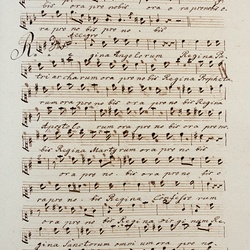 bis ora pro nobis ora pro nobis o
ra pro no bis pro no bis
Allegro
Regina Angelorum Regina Pa
tri archarum ora pro no bis Regina Prophe
rum ora pro no bis ora pro no bis Regina
Apostolo rum ora pro no bis ora pro no
bis Regina Martyrum ora pro no bis
ora pro no bis ora pro no bis o
ra pro no bis Regina Confessorum
ora pro no bis Regina Virginum Re
gina Sanctorum omnium ora pro no